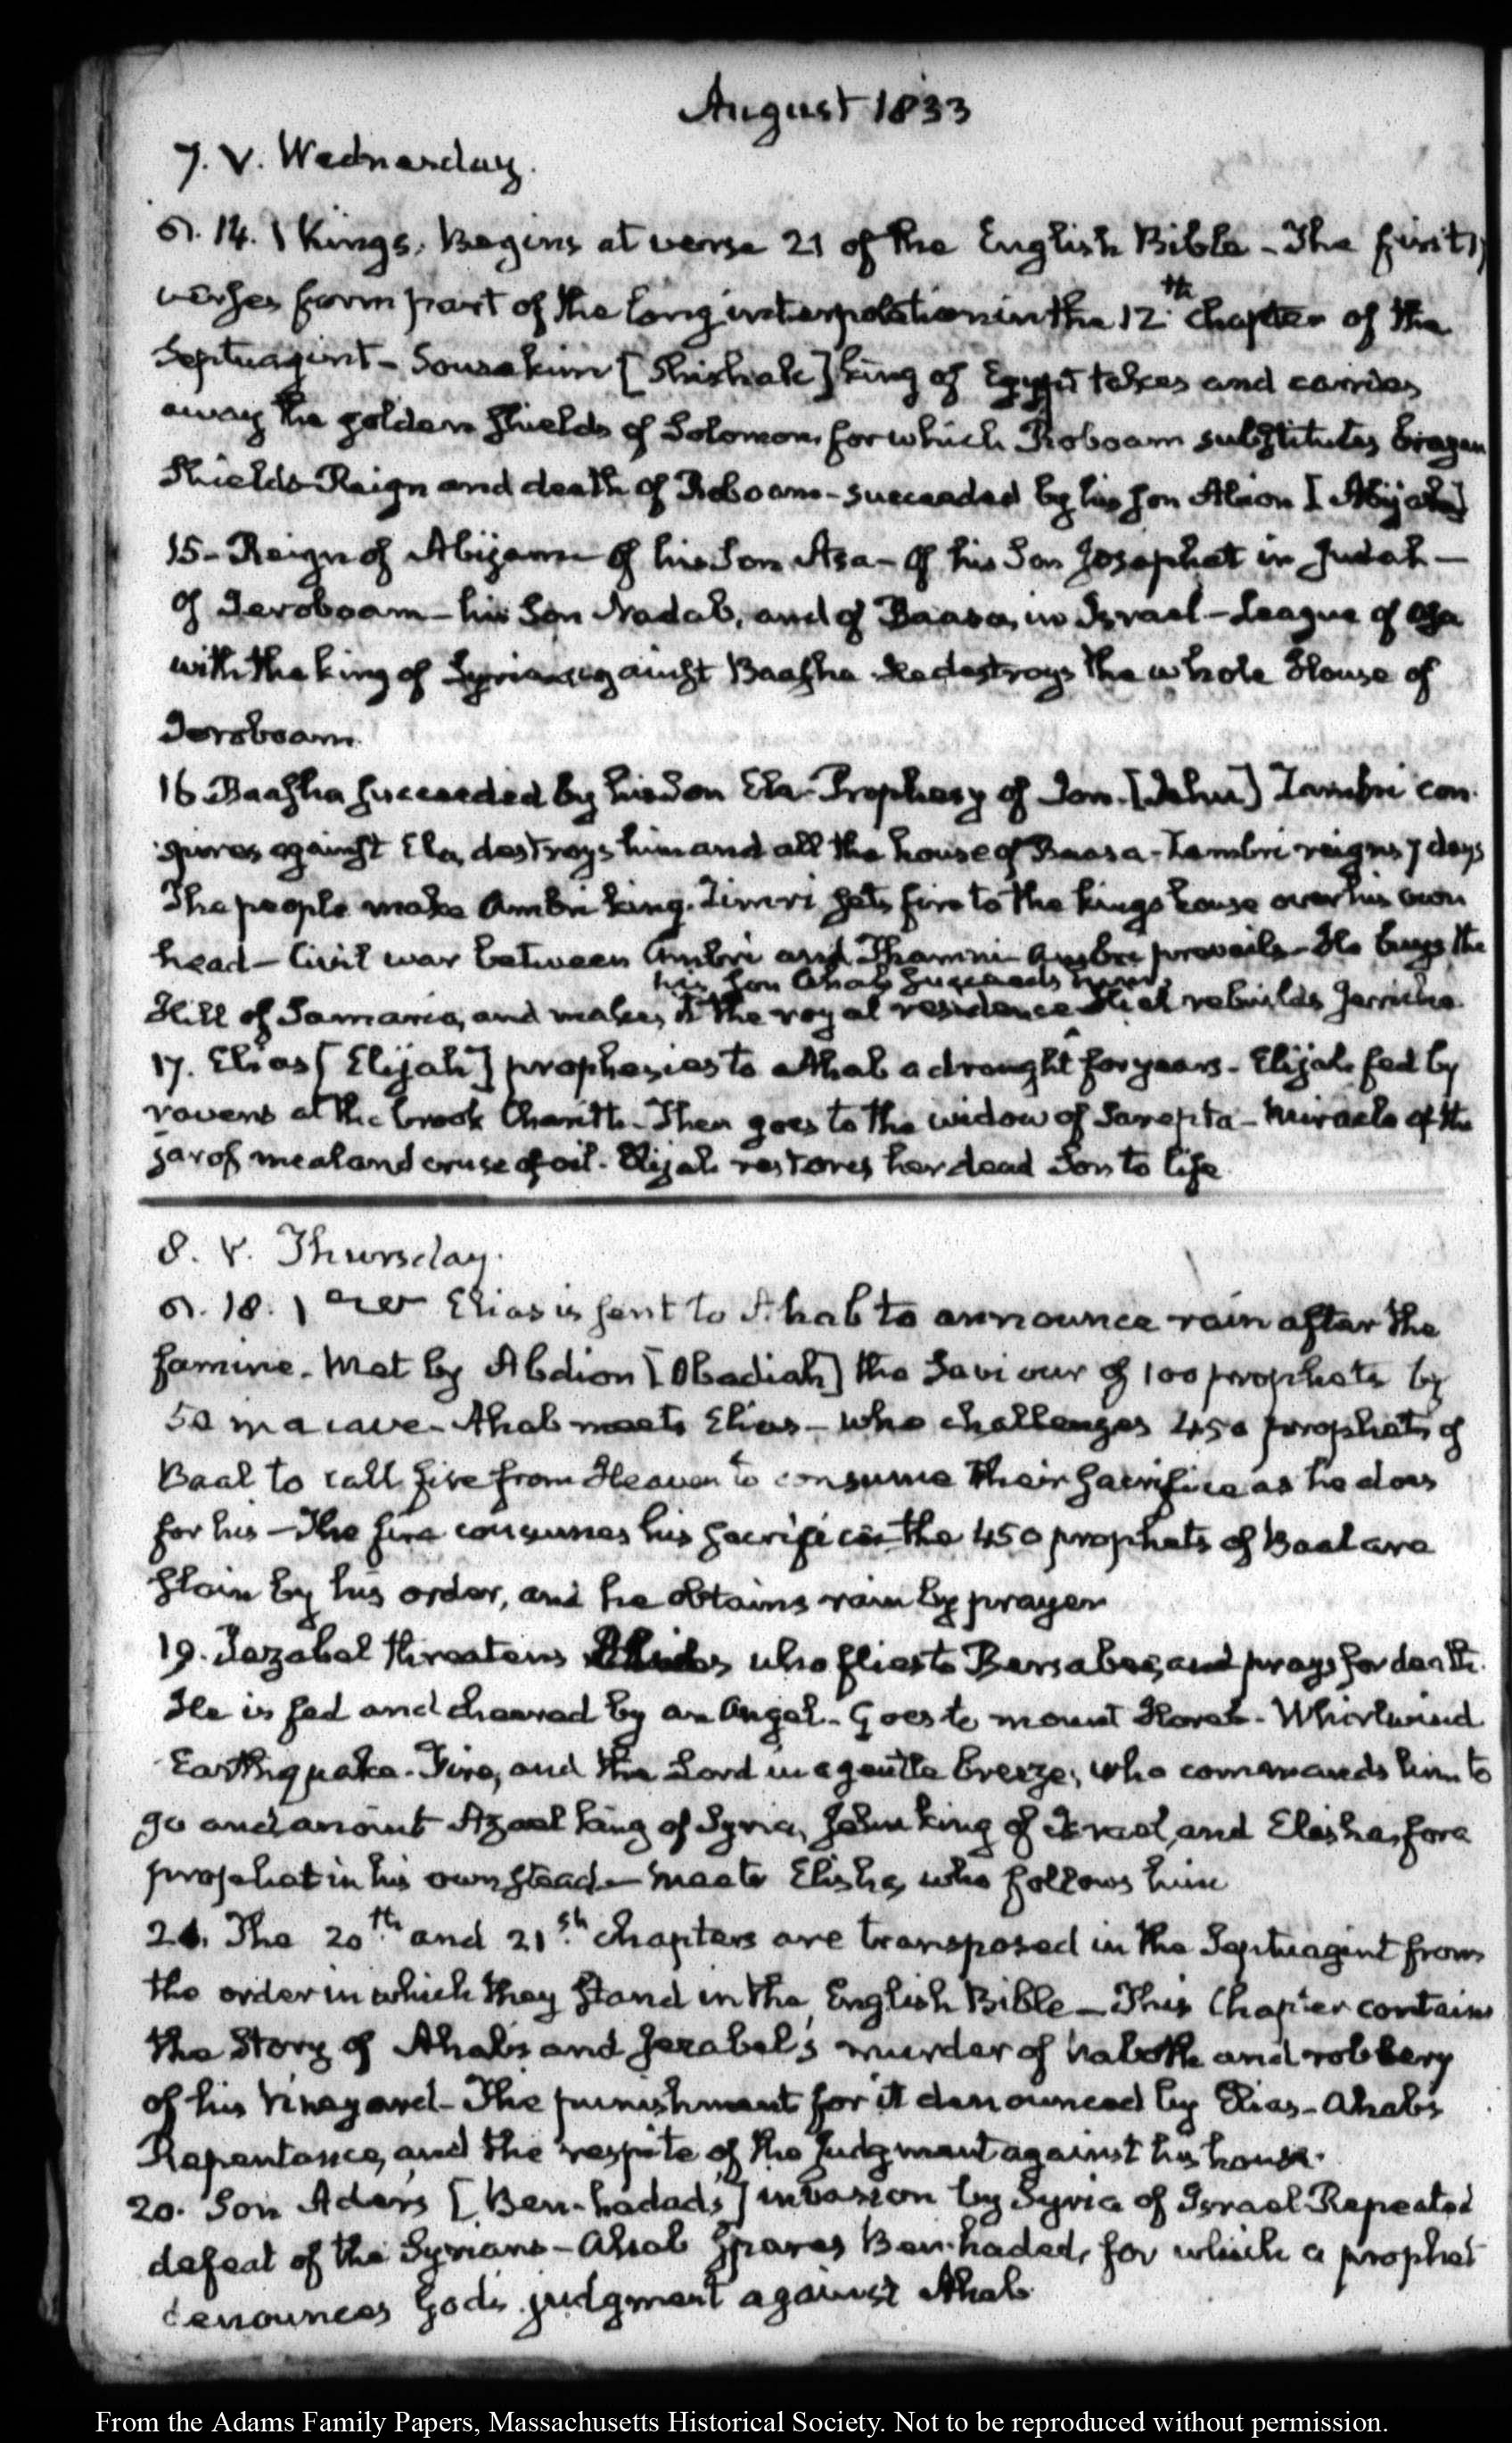 August 1833
7. V. Wednesday.
14. 1 Kings. Begins at verse 21 of the English Bible - The first
verses form part of the long interpolation in the 12th chapter of the
Septuagint - Sousakim [Shishak] king of Egypt takes and carries
away the golden shields of Solomon, for which Roboam substitutes brazen
shields - Reign and death of Roboam - succeeded by his son Abiou [Abijah]
15 - Reign of Abijam - of his Son Asa - of his Son Josaphat in Judah -
of Jeroboam - his Son Nadab, and of Baasa, in Israel - League of Asa
with the king of Syria against Baasha. He destroys the whole House of
Jeroboam.
16 Baasha succeeded by his Son Ela - Prophesy of Jou. [Jehu] Zambri con-
spires against Ela, destroys him and all the house of Baasa - Zambri reigns 7 days
The people make Ambri king. Zimri sets fire to the kings house over his own
head - Civil war between Ambri and Thamni - Ambri prevails - He buys the
his Son Ahab succeeds him.
Hill of Samaria, and makes it the royal residence - Hiel rebuilds Jericho.
17. Elias [Elijah] prophesies to Ahab a drought for years - Elijah fed by
ravens at the brook Charith - Then goes to the widow of Sarepta - Miracle of the
jar of meal and cruse of oil. Elijah restores her dead Son to life
8. V. Thursday.
18. 1 Elias is sent to Ahab to announce rain after the
famine. Met by Abdiou [Obadiah] the Saviour of 100 prophets by
50 in a cave - Ahab meets Elias - who challenges 450 prophets of
Baal to call fire from Heaven to consume their sacrifice as he does
for his - The fire consumes his sacrifice the 450 prophets of Baal are
slain by his order, and he obtains rain by prayer
19. Jezabel threatens who flies to Bersabee, and prays for death.
He is fed and cheered by an Angel - Goes to mount Horeb - Whirlwind
Earthquake - Fire, and the Lord in a gentle breeze, who commands him to
go and anoint Azael king of Syria, Jehu king of Israel, and Elisha, for a
prophet in his own stead - meets Elisha, who follows him
21. The 20th and 21st chapters are transposed in the Septuagint from
the order in which they stand in the English Bible - This Chapter contains
the Story of Ahab's and Jezabel's murder of Naboth and robbery
of his Vineyard - The punishment for it denounced by Elias - Ahab's
Repentance, and the respite of the Judgment against his house.
20. Son Ader's [Ben-hadad's] invasion by Syria of Israel Repeated
defeat of the Syrians - Ahab spares Ben-hadad, for which a prophet
denounces God's judgment against Ahab
From the Adams Family Papers, Massachusetts Historical Society. Not to be reproduced without permission.